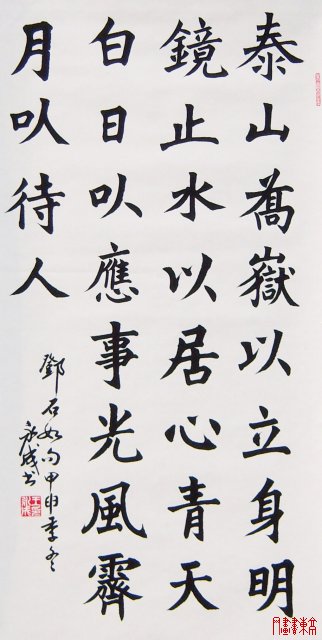 泰山喬嶽以立身明
鏡止水以居心青天
白日以應事光風霽
月以待人
鄧石如句甲申季冬
永成书